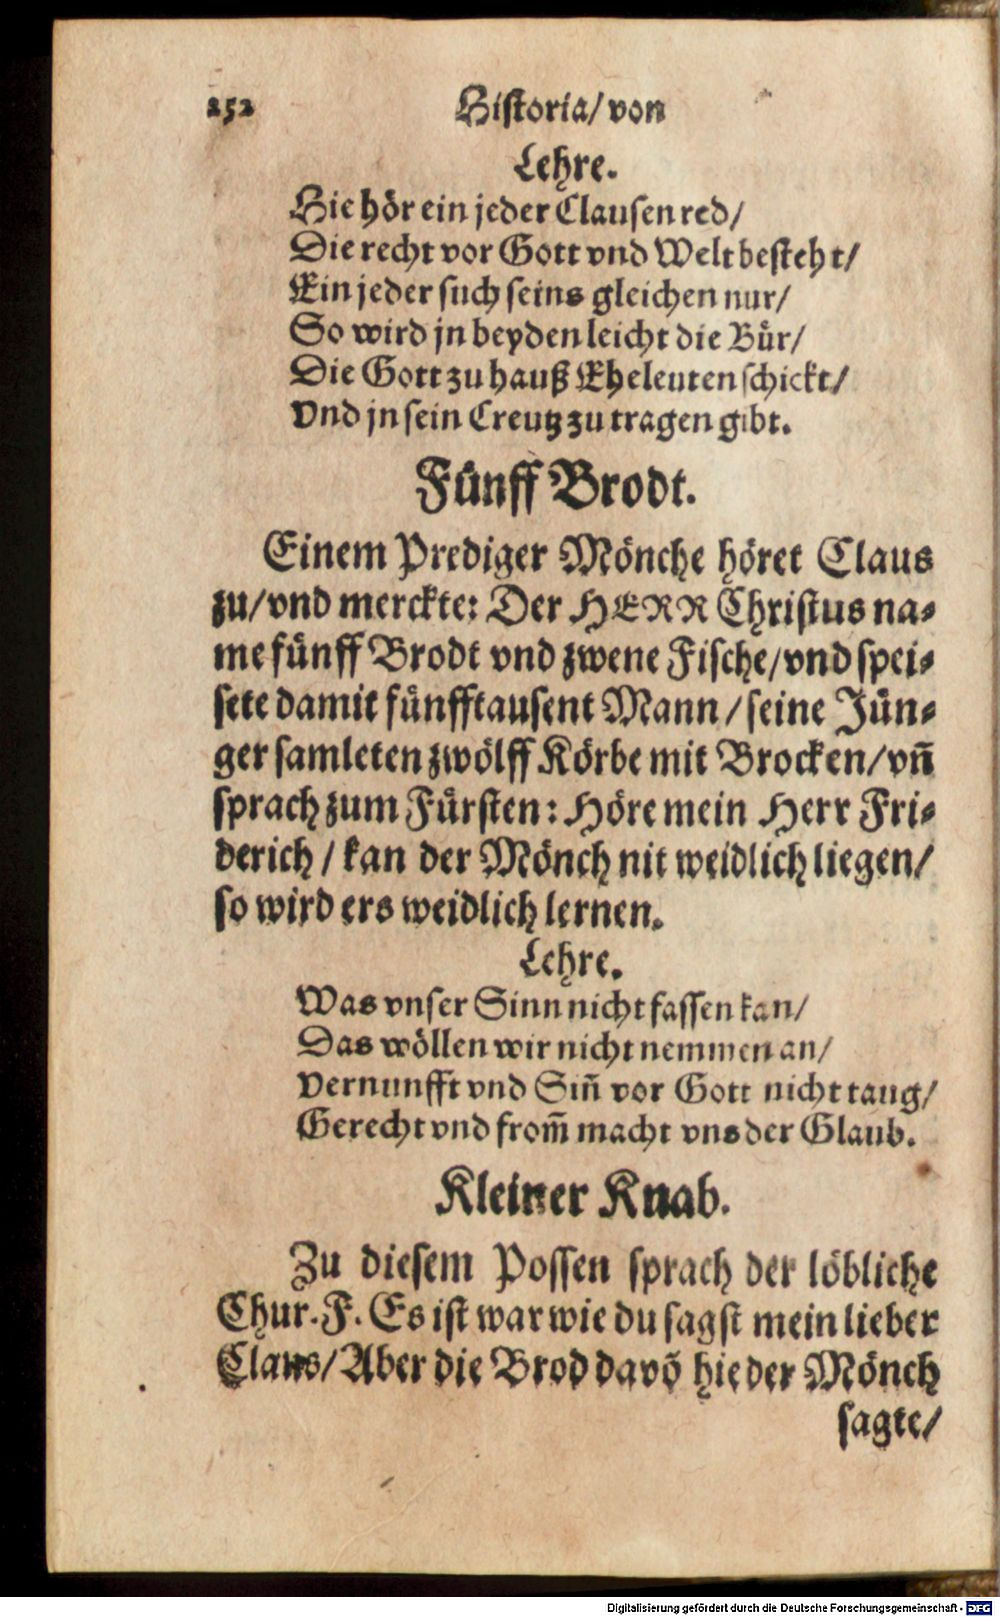 252 Historia/ von
Lehre.
Hie hör ein jeder Clausen red/
Die recht vor Gott vnd Welt besteht/
Ein jeder such seins gleichen nur/
So wird jn beyden leicht die Bür/
Die Gott zu hauß Eheleuten schickt/
Vnd jn sein Creutz zu tragen gibt.
Fünff Brodt.
Einem Prediger Mönche höret Claus
zu/ vnd merckte: Der HERR Christus na-
me fünff Brodt vnd zwene Fische/ vnd spei-
sete damit fünfftausent Mann/ seine Jün-
ger samleten zwölff Körbe mit Brocken/ vn̄
sprach zum Fürsten: Höre mein Herr Fri-
derich/ kan der Mönch nit weidlich liegen/
so wird ers weidlich lernen.
Lehre.
Was vnser Sinn nicht fassen kan/
Das wöllen wir nicht nemmen an/
Vernunfft vnd Sin̄ vor Gott nicht taug/
Gerecht vnd from̄ macht vns der Glaub.
Kleiner Knab.
Zu diesem Possen sprach der löbliche
Chur. F. Es ist war wie du sagst mein lieber
Claus/ Aber die Brod davō hie der Mönch
sagte/
Digitalisierung gefördert durch die Deutsche Forschungsgemeinschaft - DFG